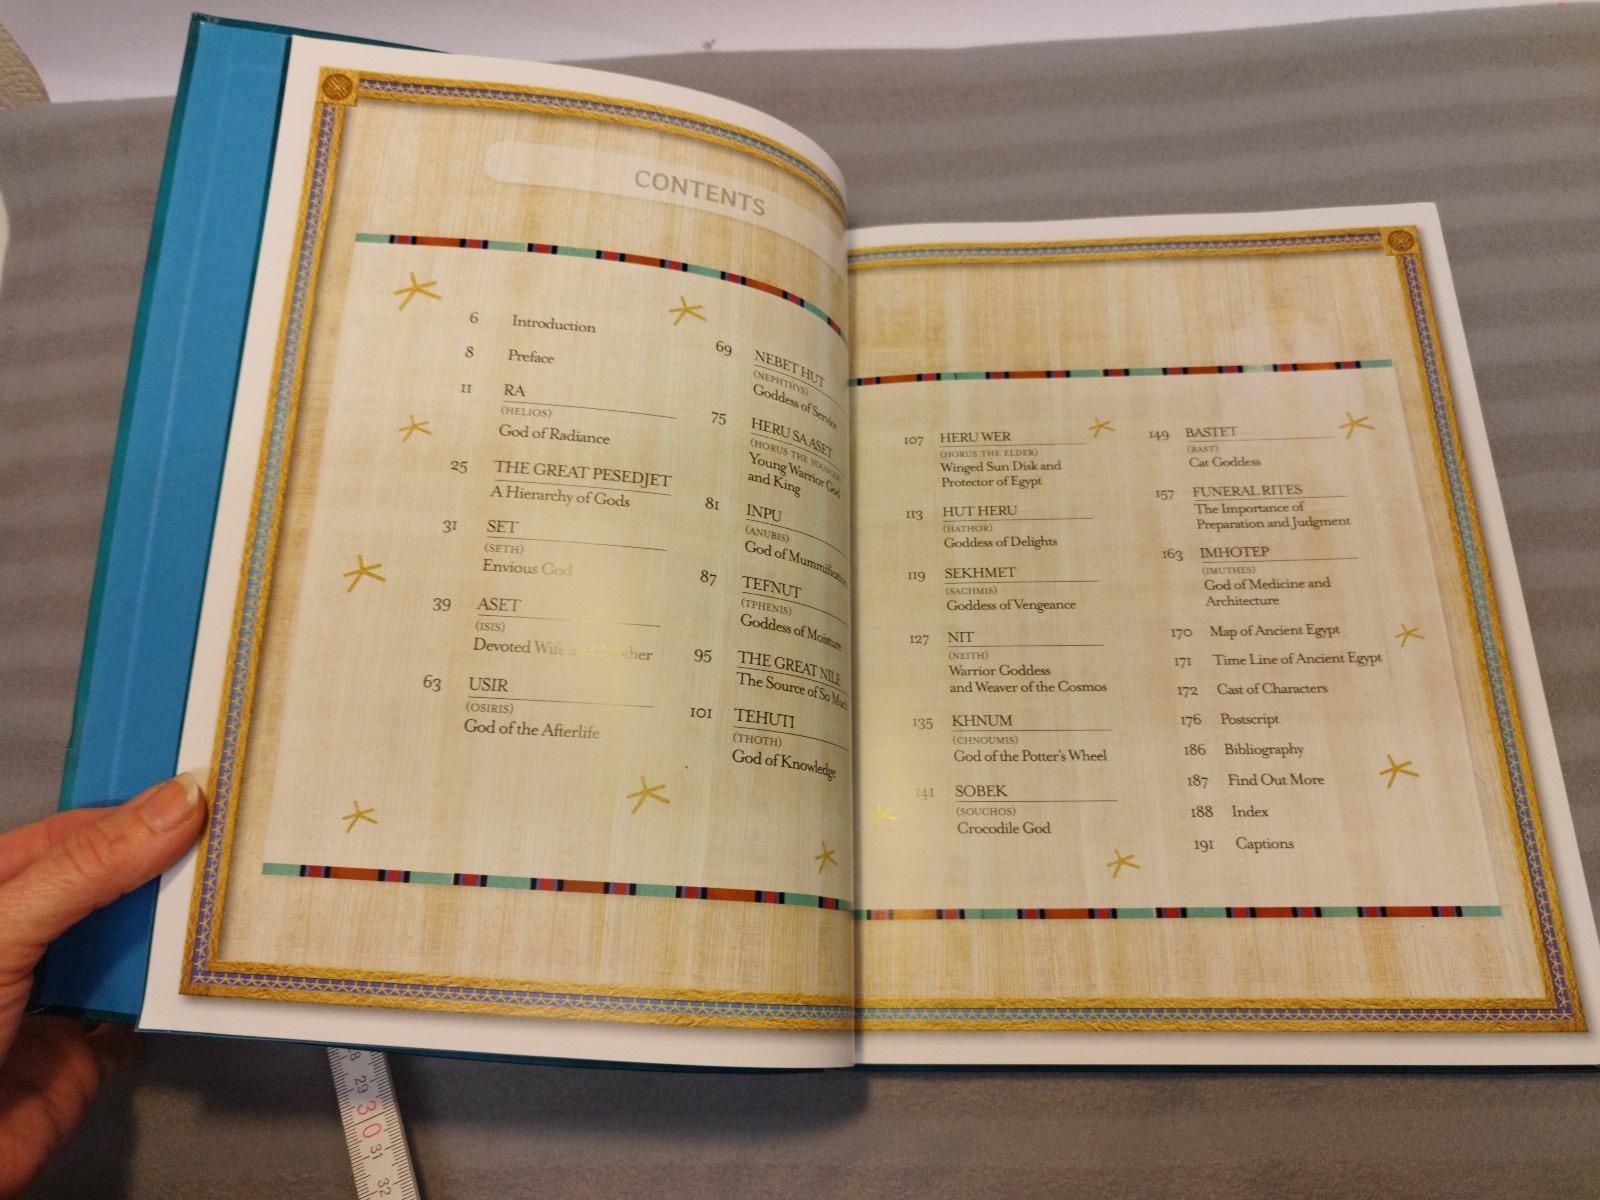 CONTENTS
6 Introduction
8 Preface
11 RA
(HELIOS)
God of Radiance
25 THE GREAT PESEDJET
A Hierarchy of Gods
31 SET
(SETH)
Envious God
39 ASET
(ISIS)
Devoted Wife and Mother
63 USIR
(OSIRIS)
God of the Afterlife
69 NEBET HUT
(NEPHTHYS)
Goddess of Service
75 HERU SA ASET
(HORUS THE YOUNGER)
Young Warrior God
and King
81 INPU
(ANUBIS)
God of Mummification
87 TEFNUT
(TPHENIS)
Goddess of Moisture
95 THE GREAT NILE
The Source of So Much
101 TEHUTI
(THOTH)
God of Knowledge
107 HERU WER
(HORUS THE ELDER)
Winged Sun Disk and
Protector of Egypt
113 HUT HERU
(HATHOR)
Goddess of Delights
119 SEKHMET
(SACHMIS)
Goddess of Vengeance
127 NIT
(NEITH)
Warrior Goddess
and Weaver of the Cosmos
135 KHNUM
(CHNOUMIS)
God of the Potter's Wheel
141 SOBEK
(SOUCHOS)
Crocodile God
149 BASTET
(BAST)
Cat Goddess
157 FUNERAL RITES
The Importance of
Preparation and Judgment
163 IMHOTEP
(IMUTHES)
God of Medicine and
Architecture
170 Map of Ancient Egypt
171 Time Line of Ancient Egypt
172 Cast of Characters
176 Postscript
186 Bibliography
187 Find Out More
188 Index
191 Captions
8
29
30
31
32